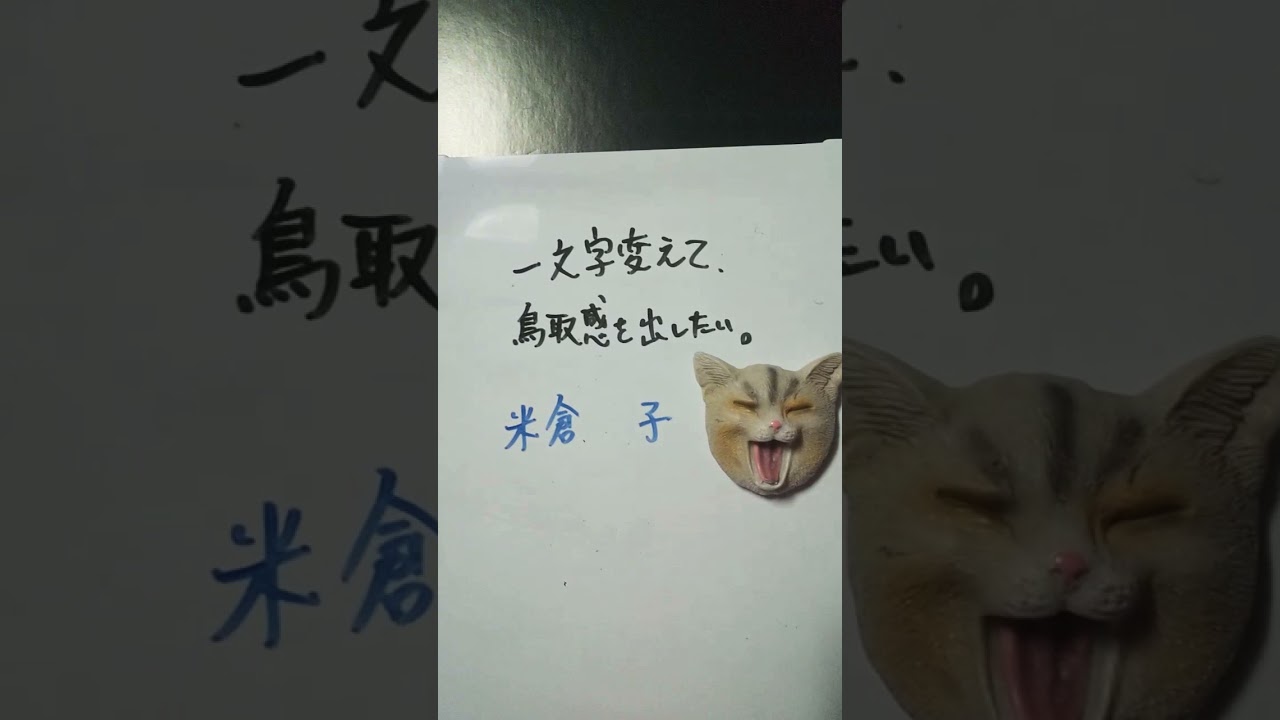 一文字変えて、
鳥取感を出したい。
米倉　子